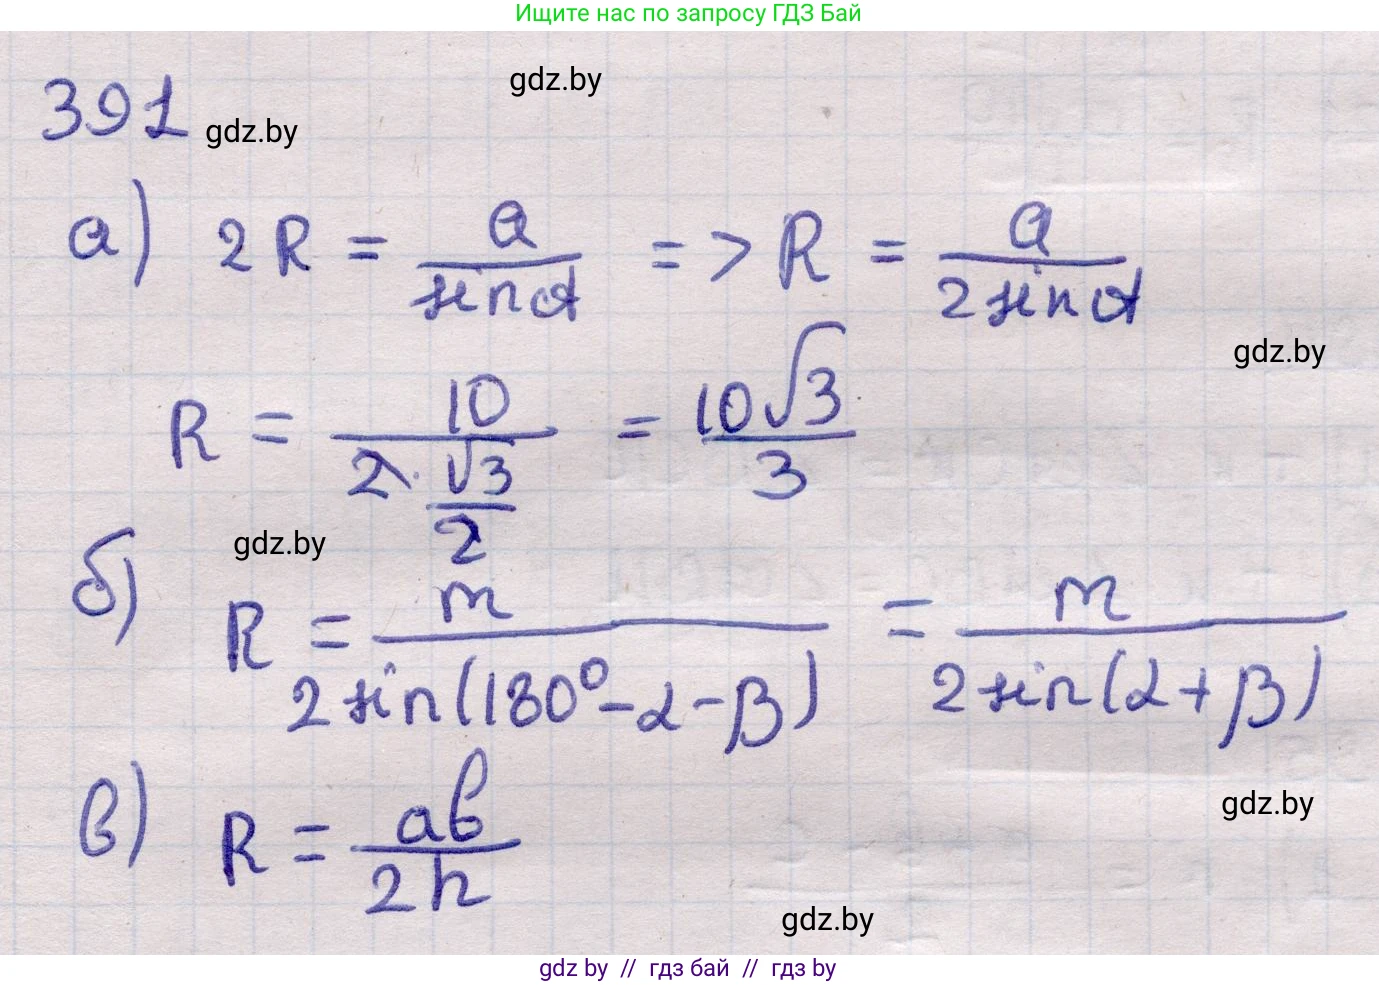 Ищите нас по запросу ГДЗ Бай
gdz.by
391 gdz.by
а) 2R = a/sinα => R = a/2sinα
gdz.by
R = 10/(2·√3/2) = 10√3/3
gdz.by
б) R = m/2sin(180°-α-β) = m/2sin(α+β)
gdz.by
в) R = ab/2h
gdz.by
gdz by // гдз бай // гдз by